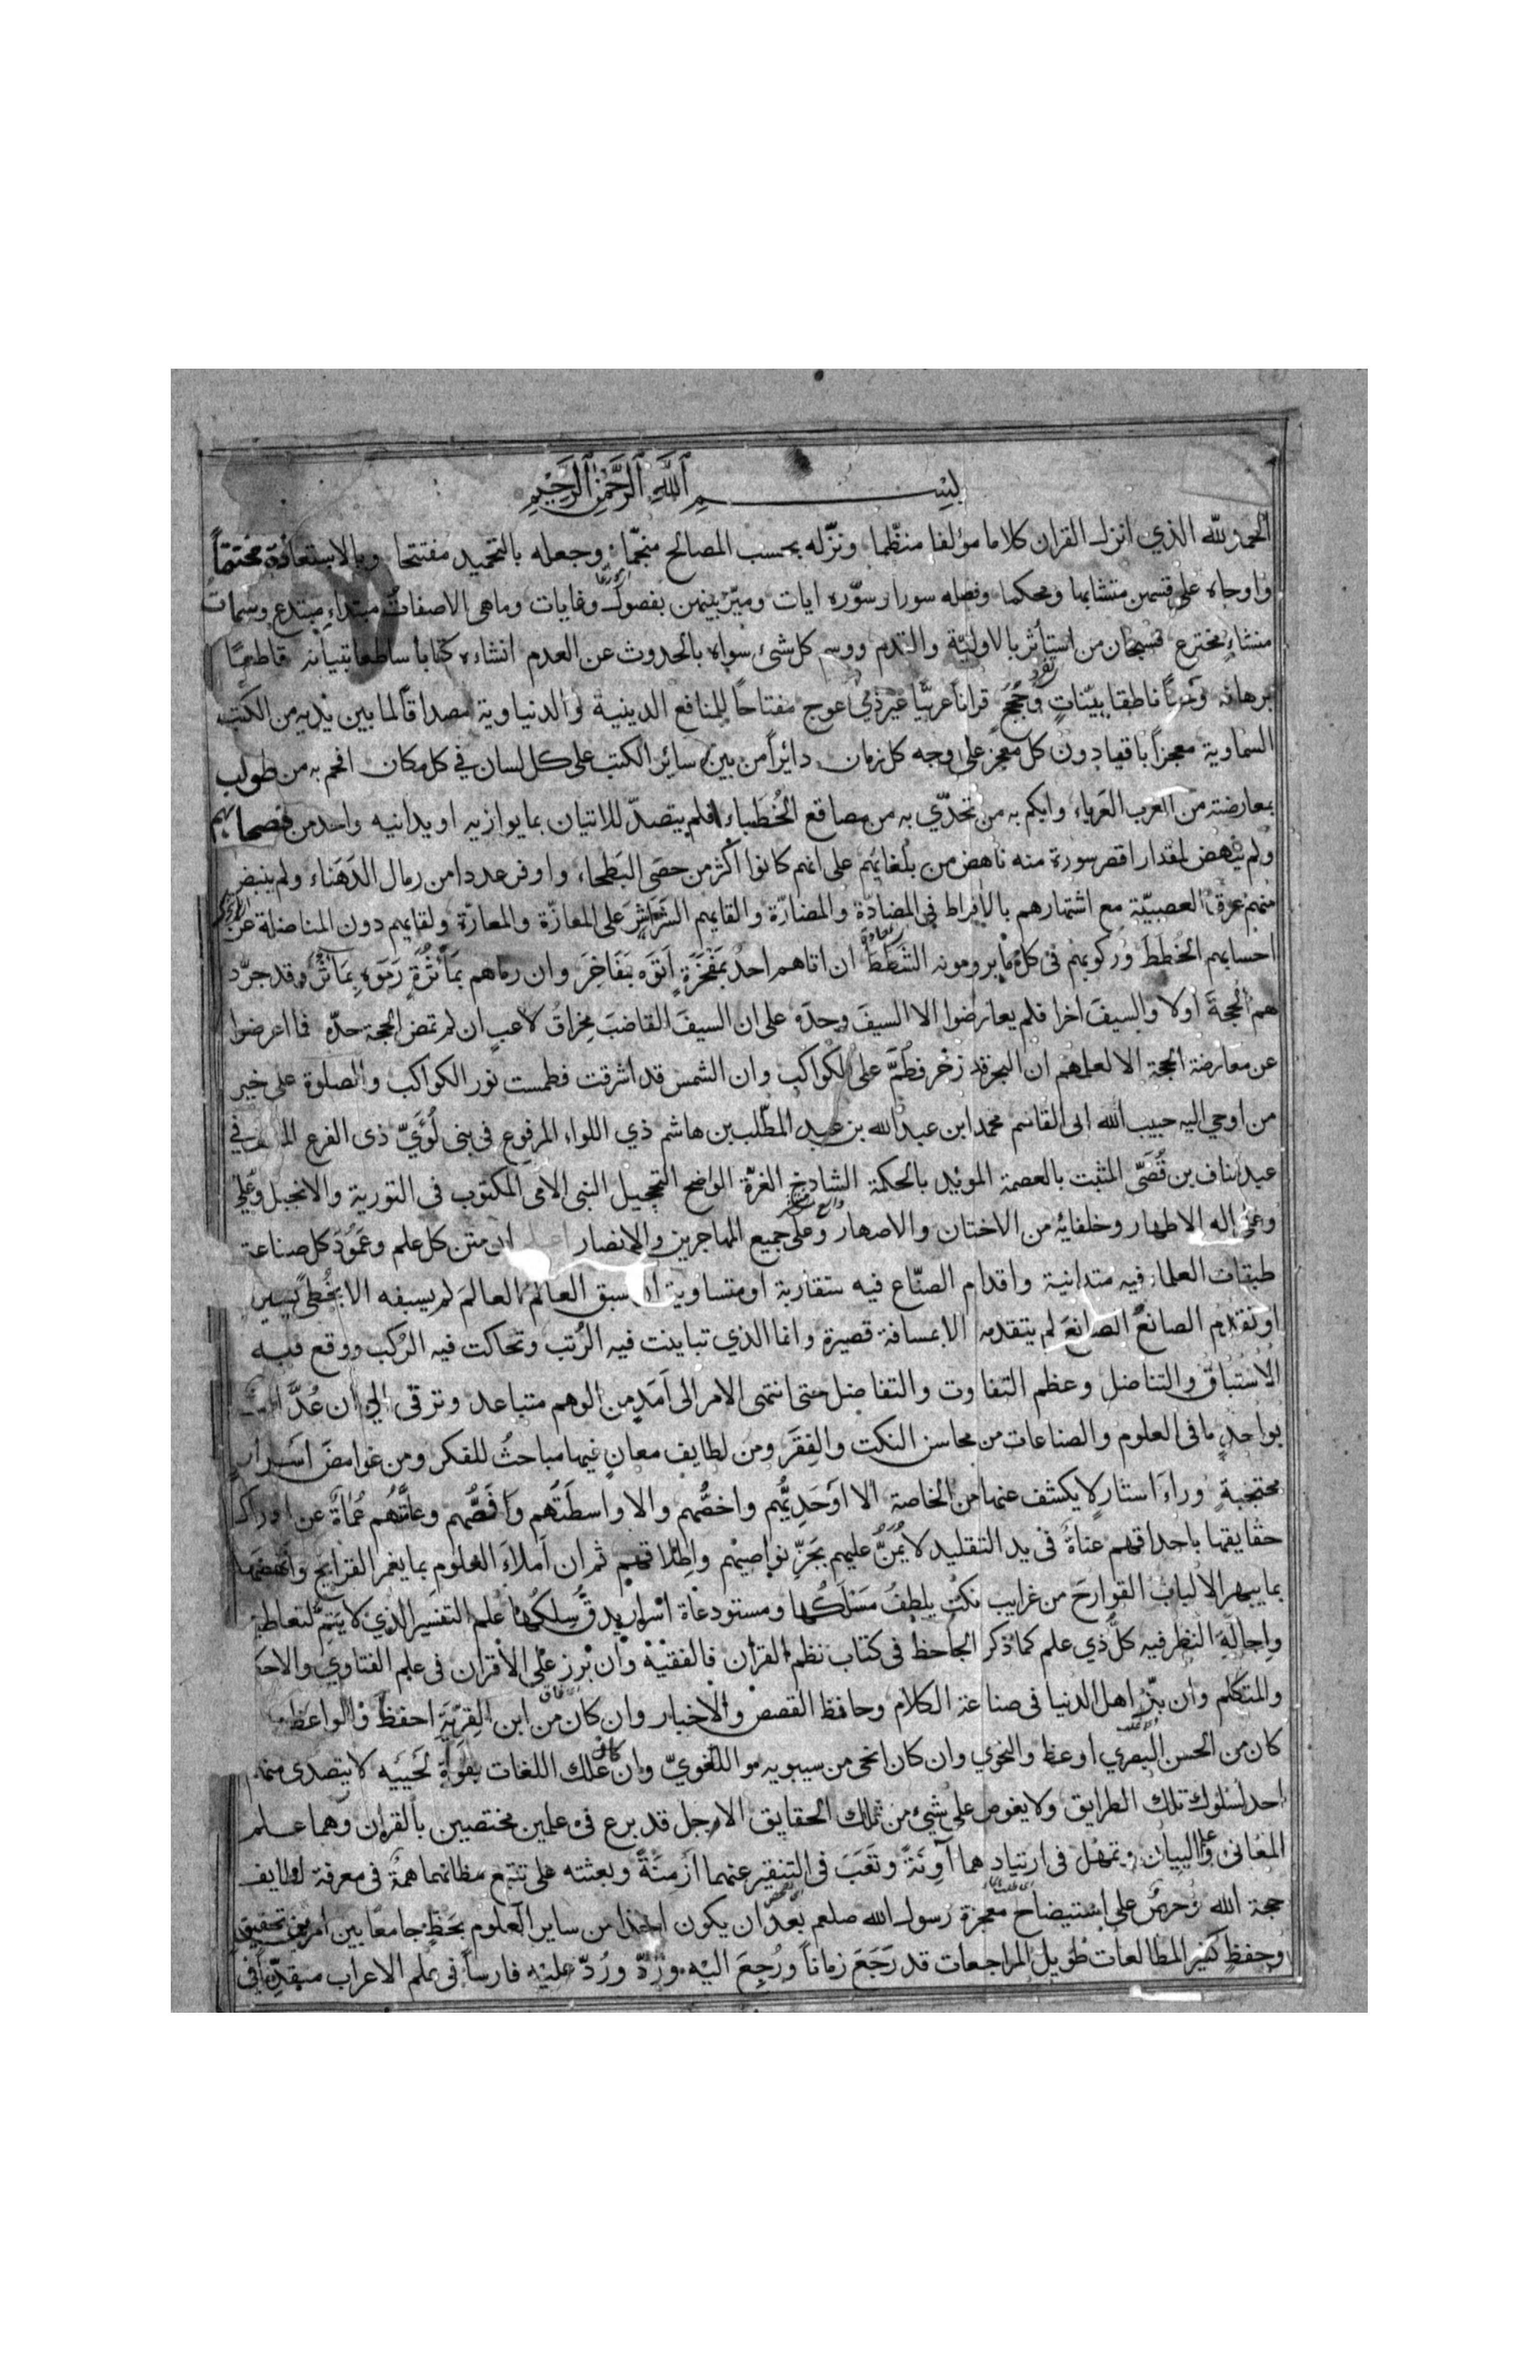 بسم الله الرحمن الرحيم
الحمد لله الذي انزل القران كلاما مؤلفا منظّما ونزّله بحسب المصالح منجّما وجعله بالتحميد مفتتحا وبالاستعاذة مختتماً
واوحاه على قسمين متشابها ومحكما وفصله سورا وسوّره ايات وميّز بينهن بفصول وغايات وماهى الاصفات مبتداءٍ مبتدع وسمات
منشاءٍ مخترع فسبحان من استأثر بالاوليّة والقدم ووسم كل شئ سواه بالحدوث عن العدم انشاءه كتابا ساطعا تبيانه قاطعًا
برهانه وحيًا ناطقا ببيّناتٍ وحُججٍ قراناً عربيًّا غير ذي عوج مفتاحاً للمنافع الدينية والدنياوية مصداقاً لما بين يديه من الكتب
السماوية معجزاً باقيا دون كل معجز على وجه كل زمان دائراً من بين سائر الكتب على كل لسان في كل مكان افحم به من طولب
بمعارضته من العرب العرباء وابكم به من تحدّي به من مصاقع الخُطَباء فلم يتصدّ للاتيان بما يوازيه او يدانيه واحد من فصحائهم
ولم ينهض لمقدار اقصر سورة منه ناهض من بُلغائهم على انهم كانوا اكثر من حصَى البَطحاء واوفر عددا من رمال الدَهنَاء ولم ينبض
منهم عرق العصبيّة مع اشتهارهم بالافراط في المضادّة والمضارّة والقايهم الشَراشِرَ على المعازّة والمعارّة ولقايهم دون المناضلة عن
احسابهم الخُطَطَ وركوبهم فى كل ما يرومونه الشَطَطَ ان اتاهم احدٌ بمَفْخَرَةٍ اَتَوه بمَفَاخِرَ وان رماهم بمَأثُرَةٍ رَمَوه بِمَآثِرَ وقد جرّد
لهم الحجةَ اولا والسيفَ اخرا فلم يعارضوا الا السيفَ وحدَه على ان السيفَ القاضبَ مِخراقُ لاعبٍ ان لم تمض الحجة حدّه فما اعرضوا
عن معارضة الحجة الا لعلمهم ان البحر قد زخر فطَمَّ على الكواكب وان الشمس قد اشرقت فطمست نور الكواكب والصلوة على خير
من اوحي اليه حبيب الله ابى القاسم محمد ابن عبد الله بن عبد المطّلب بن هاشم ذي اللواء المرفوع فى بنى لُؤَيّ ذى الفرع في
عبد مناف بن قُصَيّ المثبت بالعصمة المويد بالحكمة الشادخ الغرّة الواضح التحجيل النبى الامى المكتوب فى التورية والانجيل وعلى
وعلى اله الاطهار وخلفائه من الاختان والاصهار وعلى جميع المهاجرين والانصار اعلم ان متن كل علم وعَمُودَ كل صناعة
طبقات العلماء فيه متدانية واقدام الصنّاع فيه متقاربة او متساوية ان سبق العالمُ العالمَ لم يسبقه الا بخُطًى يسيرة
او تقدم الصانعُ الصانعَ لم يتقدمه الا بمسافة قصيرة وانما الذي تباينت فيه الرُتب وتحاكت فيه الرُكب ووقع فيه
الاستباق والتناضل وعظم التفاوت والتفاضل حتى انتهى الامر الى اَمَدٍ من الوهم متباعد وترقى الى ان عُدَّ
بواحدٍ ما فى العلوم والصناعات من محاسن النكت والفِقَر ومن لطايف معانٍ فيها مباحثُ للفكر ومن غوامض اسرارٍ
محتجبةٍ وراءَ استارٍ لا يكشف عنها من الخاصة الا اَوْحَدِيُّهم واخصُّهم والا واسطَتُهم وفَصُّهم وعامَّتُهم عُماةٌ عن ادراك
حقايقها باحداقهم عناةٌ فى يد التقليد لا يُمَنُّ عليهم بجَزِّ نواصيهم واطلاقهم ثم ان اَملاءَ العلوم بما يغمر القرايح وانهضها
بما يبهر الالبابَ القوارحَ من غرايب نكتٍ يلطفُ مَسْلَكُها ومستودعاة اسرار يدقُّ سِلكُها علم التفسير الذي لا يَتِمّ لتعاطيه
واجالةِ النظر فيه كلّ ذي علم كما ذكر الجاحظ فى كتاب نظم القران فالفقيهُ وان برز على الاقران فى علم الفتاوي والاحكام
والمتكلم وان بزّ اهل الدنيا فى صناعة الكلام وحافظ القصص والاخبار وان كان من ابن القِرِّيَّةِ احفظَ والواعظ
كان من الحسن البصري اوعظ والنحوي وان كان انحى من سيبويه واللغويّ وان علك اللغات بقوّةِ لَحْيَيه لا يتصدى منهم
احد لسلوك تلك الطرايق ولا يغوص على شيءٍ من تلك الحقايق الا رجل قد برع فى علمين مختصين بالقران وهما علم
المعانى وعلم البيان وتمهّل فى ارتيادهما آوِنَةً وتَعَبَ فى التنقير عنهما اَزمنَةً وبعثته على تتبع مظانهما همةٌ فى معرفة لطايف
حجة الله وحرصٌ على استيضاح معجزة رسول الله صلعم بعد ان يكون اخذا من ساير العلوم بحَظٍّ جامعًا بين امرين تحقيقٍ
وحِفظٍ كثير المطالعات طويل المراجعات قد رَجَعَ زماناً ورُجِعَ اليه ورَدَّ ورُدّ عليه فارساً فى علم الاعراب مقدّما فى